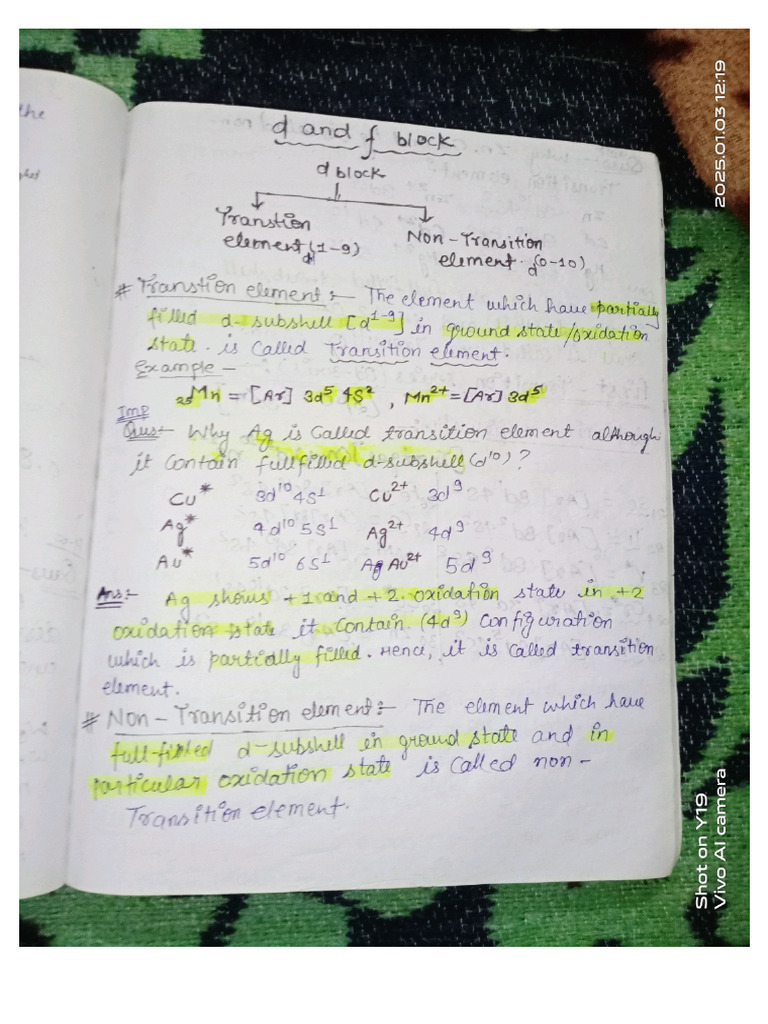 d and f block
d block
Transtion
element d(1-9)
Non-Transition
element. d(0-10)
# Transtion element:- The element which have partially
filled d-subshell [d¹⁻⁹] in ground state/oxidation
state. is called Transition element.
Example -
₂₅Mn = [Ar] 3d⁵ 4S², Mn²⁺ = [Ar] 3d⁵
Imp
Ques- Why Ag is called transition element although
it contain fullfilled d-subshell (d¹⁰)?
Cu* 3d¹⁰ 4S¹ Cu²⁺ 3d⁹
Ag* 4d¹⁰ 5S¹ Ag²⁺ 4d⁹
Au* 5d¹⁰ 6S¹ Ag Au²⁺ 5d⁹
Ans:- Ag shows +1 and +2 oxidation state in +2
oxidation state it contain (4d⁹) configuration
which is partially filled. Hence, it is called transition
element.
# Non-Transition element:- The element which have
full-filled d-subshell in ground state and in
particular oxidation state is called non-
Transition element.
the
2025.01.03 12:19
Shot on Y19
Vivo AI camera